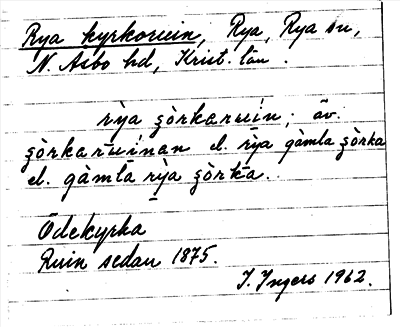 Rya kyrkoruin, Rya, Rya sn,
N. Åsbo hd, Krist. län.
rỳa ʂòrkaruín; äv.
ʂòrkaruínan el. rỳa gàmla ʂòrka
el. gàmla rỳa ʂòrka.
Ödekyrka
Ruin sedan 1875.
I. Ingers 1962.